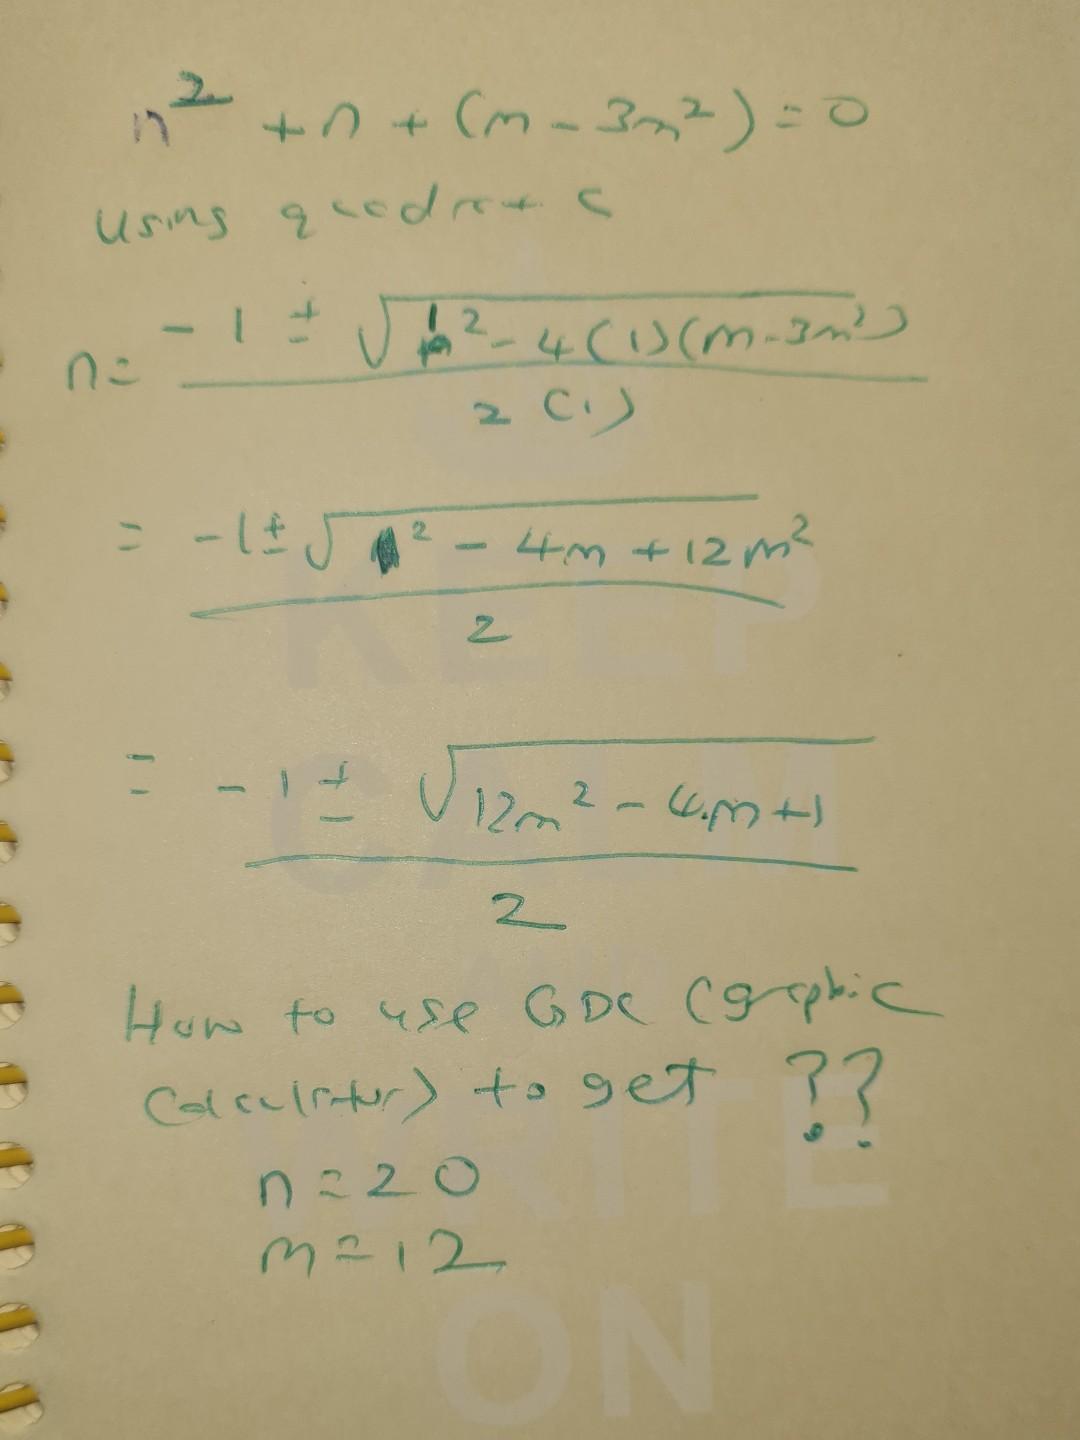 n² + n + (m - 3m²) = 0
using quadratic
n = (-1 ± √(1² - 4(1)(m - 3m²))) / 2(1)
= (-1 ± √(1² - 4m + 12m²)) / 2
= (-1 ± √(12m² - 4m + 1)) / 2
How to use GDC (graphic
calculator) to get ??
n = 20
m = 12
KEEP
CALM
AND
WRITE
ON